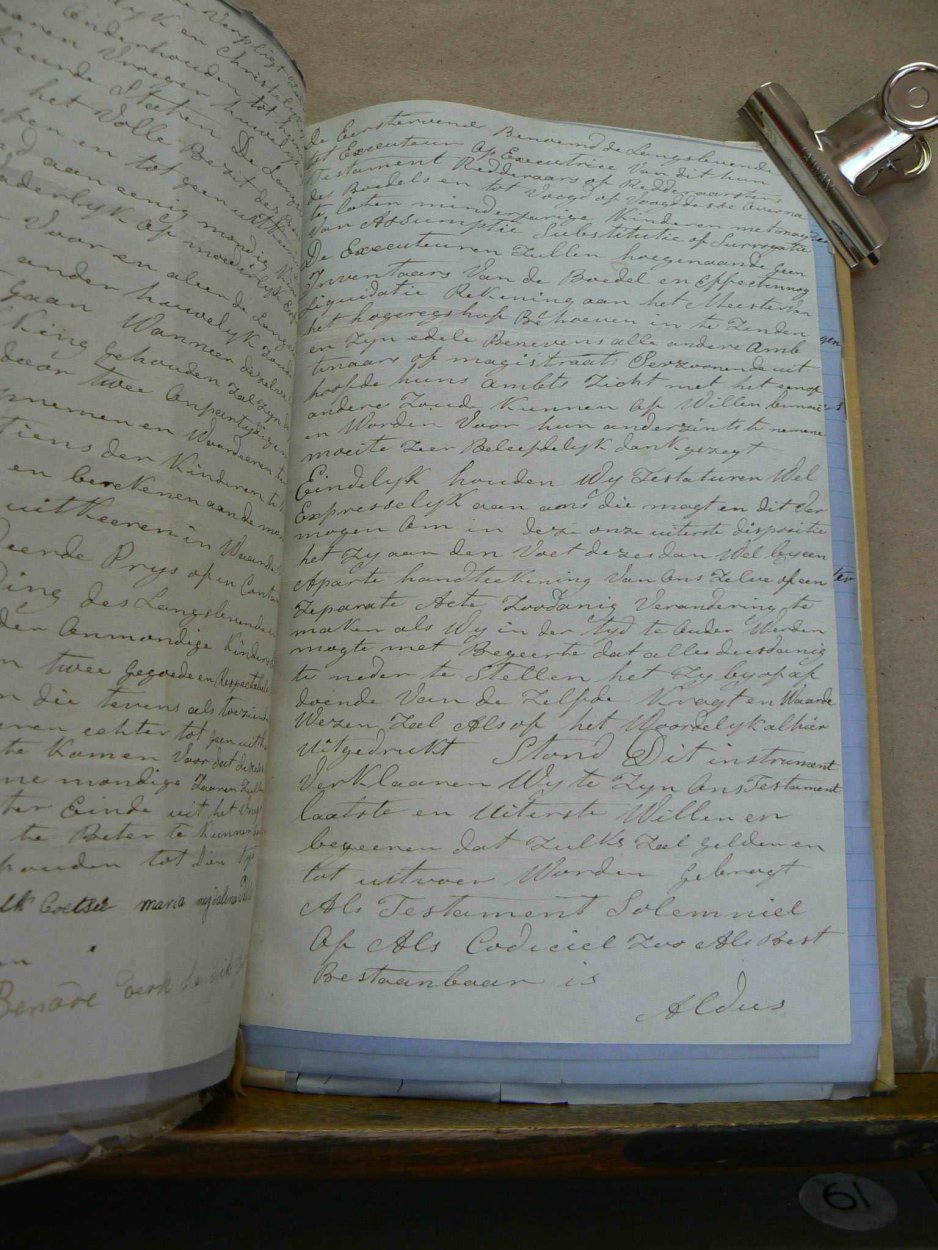 Verpligt
lyk en Christelyk
onderhouden tot het
Vroeger huwelyk
Staeten De Lang
het Volle Bezit des
en tot geen uitkeering
aan eenig mondig Kin
derlyk of moederlyk
Voor en aleer de Lang
ander huwelyk
gaan Wanneer dezelve
king gehouden Zal Zyn
door twee Onpartydige
nemen en Waardeeren
tiens der Kinderen
en berekenen aan de mon
uitkeeren in Waarde
eerde Prys of en Contan
ding des Langslevende
der Onmondige Kinders
twee gegoede en Respectabele
die tevens als toezien
echter tot geen uit
te Komen Voor dat de
mondige Zoonen Zulle
ter Einde uit het
te Beter te Kunnen
houden tot dien tyd
Coetsee maria magdalena
Benade
de Eerstervene Benoemd de Langslevende
tot Executeur Of Executrice Van dit hun
Testament Redderaars of Redderaarsters
des Boedels en tot Voogd of Voogdesse Over na
te laten minderjarige Kinderen met magt
Van Assumptie Substitutie of Surrogatie
De Executeuren Zullen hoegenaamde geen
Inventaris Van de Boedel en Effecten nog
Liquidatie Rekening aan het Meester Van
het hogeregshof Behoeven in te Zenden
en Zyn edele Benevens alle andere Amb
tenaars of magistraats Perzoonen de uit
hoofde huns ambts Zicht met het een of
andere Zoude Kunnen of Willen bemoeijen
en Worden Voor hun anderzints te nemene
moeite Zeer Beleefdelyk dank gezegt
Eindelyk houden Wy Testaturen Wel
Expresselyk aan ons die magt en dit Ver
mogen Om in deze onze uiterste dispositie
het Zy aan den Voet dezes dan Wel by een
Aparte handteekening Van Ons Zelve of een ter
Zeparate Acte Zoodanig Verandering te
maken als Wy in der tyd te Rade Werden
mogte met Begeerte dat alles dusdanig
te neder te Stellen het Zy by of af
doende Van de Zelfde Kragt en Waarde
Wezen Zal Als of het Woordelyk alhier
Uitgedrukt Stond Dit instrument
Verklaaren Wy te Zyn Ons Testament
laatste en Uiterste Willen en
begeeren dat Zulks Zal gelden en
tot uitvoer Worden gebragt
Als Testament Solemniel
Of Als Codiciel Zoo Als Best
Bestaanbaar is
Aldus
61